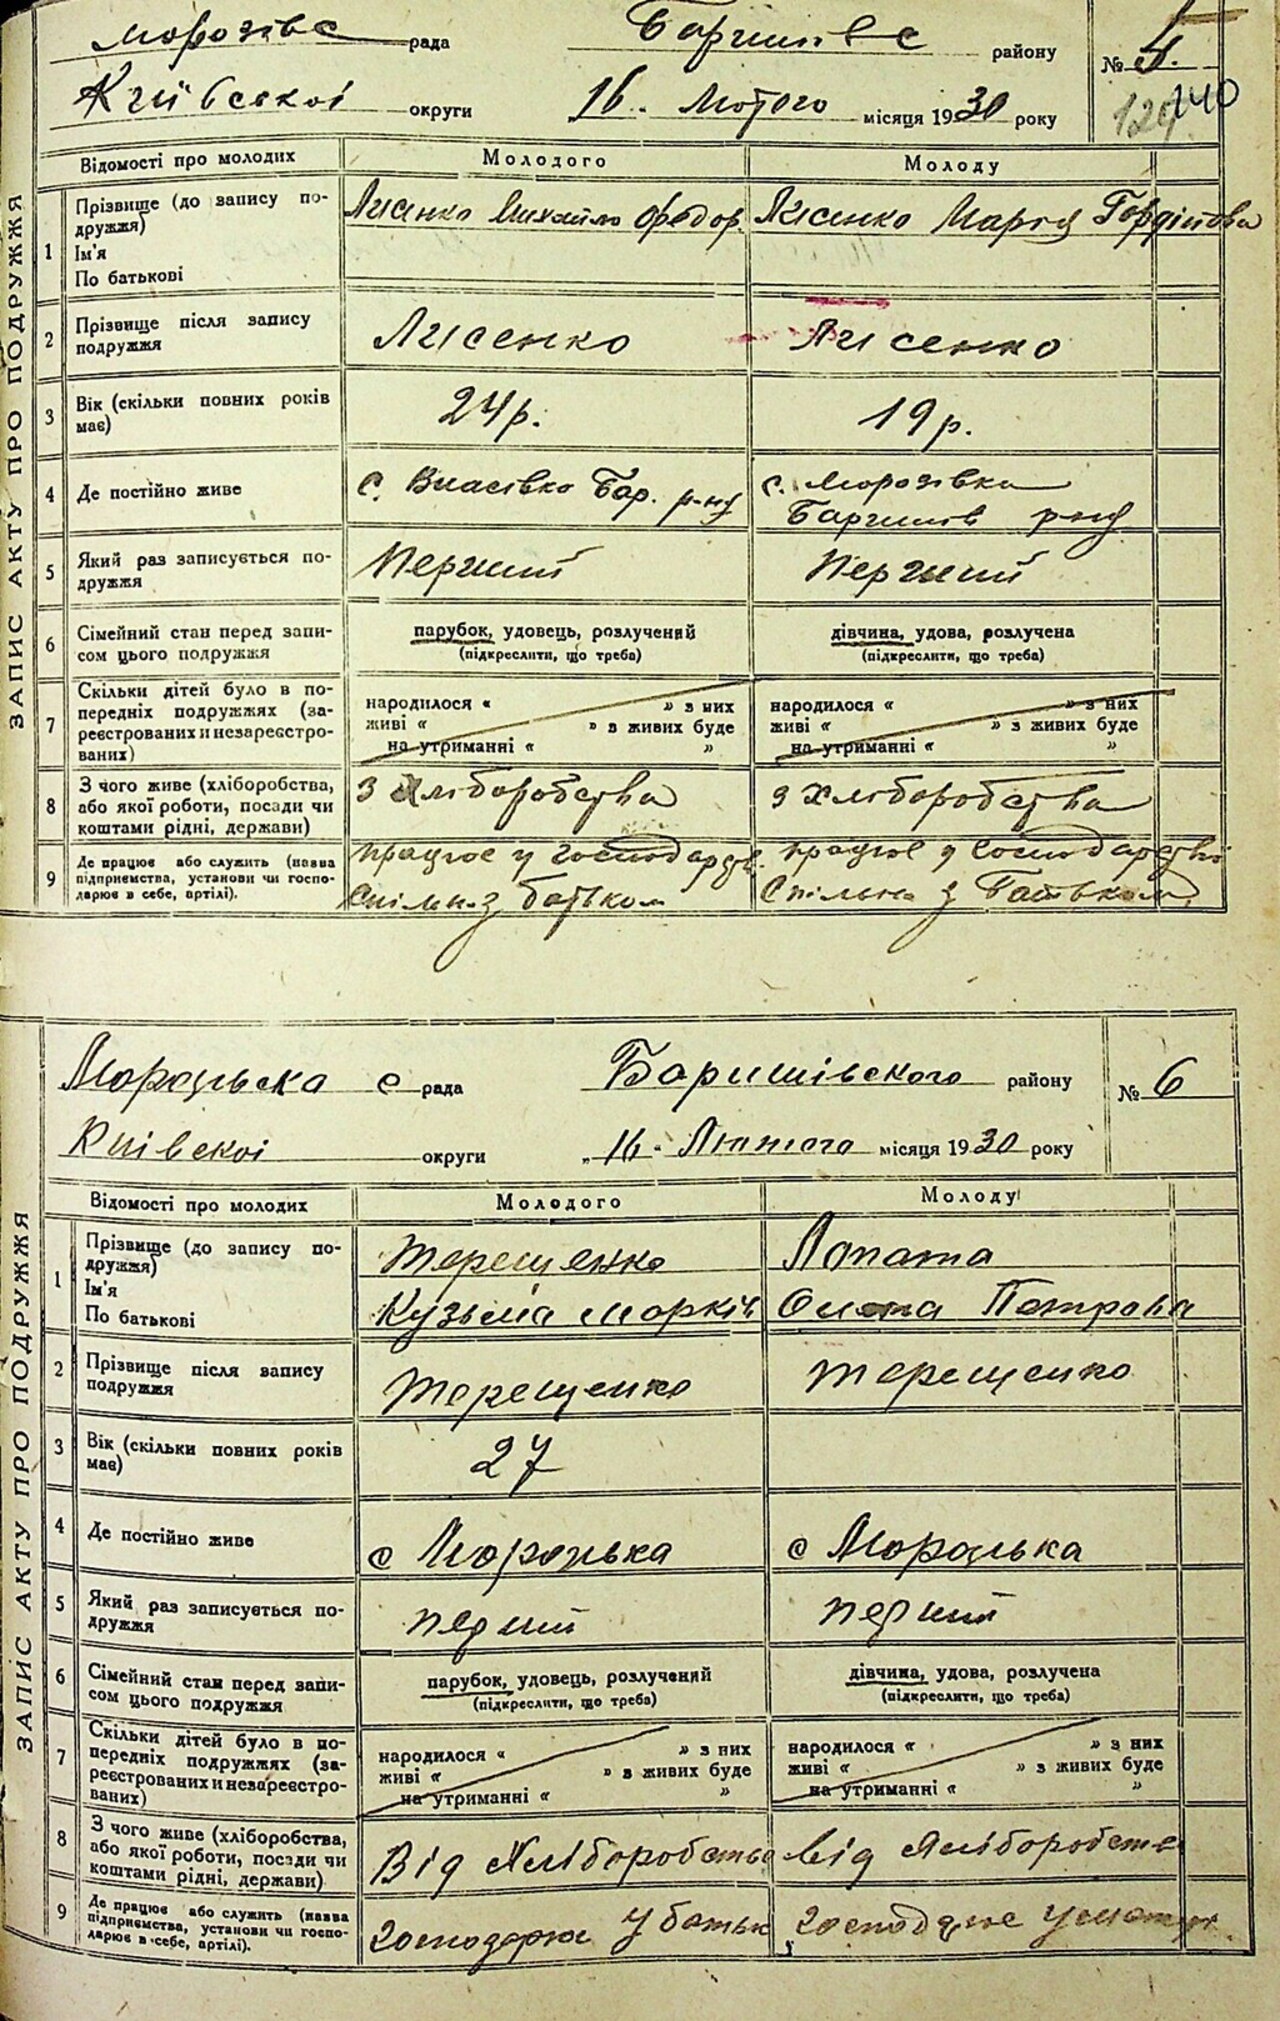 Морозівс рада Баришівс району № 5.
Київської округи 16. Лютого місяця 1930 року
129 140
ЗАПИС АКТУ ПРО ПОДРУЖЖЯ
Відомості про молодих Молодого Молоду
1 Прізвище (до запису по-
дружжя)
Ім'я
По батькові
Лисенко Михайло Федор. Лисенко Марія Гордіївова
2 Прізвище після запису
подружжя
Лисенко Лисенко
3 Вік (скільки повних років
має)
24 р. 19 р.
4 Де постійно живе
с. Власівка Бар. р-ну с. Морозівка
Баришів р-ну
5 Який раз записується по-
дружжя
Перший Перший
6 Сімейний стан перед запи-
сом цього подружжя
парубок, удовець, розлучений дівчина, удова, розлучена
(підкреслити, що треба) (підкреслити, що треба)
7 Скільки дітей було в по-
передніх подружжях (за-
реєстрованих и незареєстро-
ваних)
народилося “ ” з них народилося “ ” з них
живі “ ” з живих буде живі “ ” з живих буде
на утриманні “ ” на утриманні “ ”
8 З чого живе (хліборобства,
або якої роботи, посади чи
коштами рідні, держави)
з хліборобства з хліборобства
9 Де працює або служить (назва
підприємства, установи чи госпо-
дарює в себе, артілі).
працює у господарств. працює у господарстві
спільн. з батьком спільно з батьком
ЗАПИС АКТУ ПРО ПОДРУЖЖЯ
с рада Баришівского району № 6
Київскоі округи „16“ Лютого місяця 1930 року
Відомості про молодих Молодого Молоду
1 Прізвище (до запису по-
дружжя)
Ім'я
По батькові
Терещенко Лопата
Кузьма Марків Петрова
2 Прізвище після запису
подружжя
Терещенко Терещенко
3 Вік (скільки повних років
має)
27
4 Де постійно живе
с с
5 Який раз записується по-
дружжя
перший перший
6 Сімейний стан перед запи-
сом цього подружжя
парубок, удовець, розлучений дівчина, удова, розлучена
(підкреслити, що треба) (підкреслити, що треба)
7 Скільки дітей було в по-
передніх подружжях (за-
реєстрованих и незареєстро-
ваних)
народилося “ ” з них народилося “ ” з них
живі “ ” з живих буде живі “ ” з живих буде
на утриманні “ ” на утриманні “ ”
8 З чого живе (хліборобства,
або якої роботи, посади чи
коштами рідні, держави)
Від Хліборобства від Хліборобств
9 Де працює або служить (назва
підприємства, установи чи госпо-
дарює в себе, артілі).
господарює у батьк господарює у